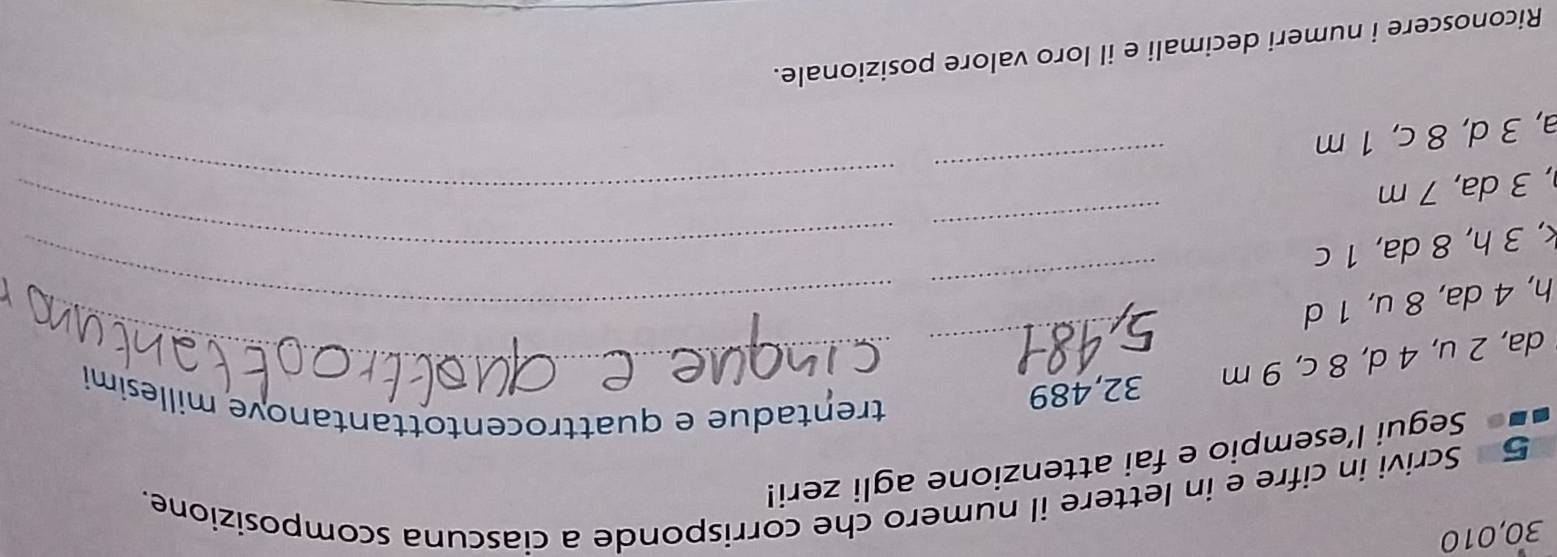 30,010
5 Scrivi in cifre e in lettere il numero che corrisponde a ciascuna scomposizione.
Segui l'esempio e fai attenzione agli zeri!
da, 2 u, 4 d, 8 c, 9 m 32,489 trentadue e quattrocentottantanove millesimi
h, 4 da, 8 u, 1 d 5,481 cinque e quattroottantuno
k, 3 h, 8 da, 1 c
, 3 da, 7 m
a, 3 d, 8 c, 1 m
Riconoscere i numeri decimali e il loro valore posizionale.